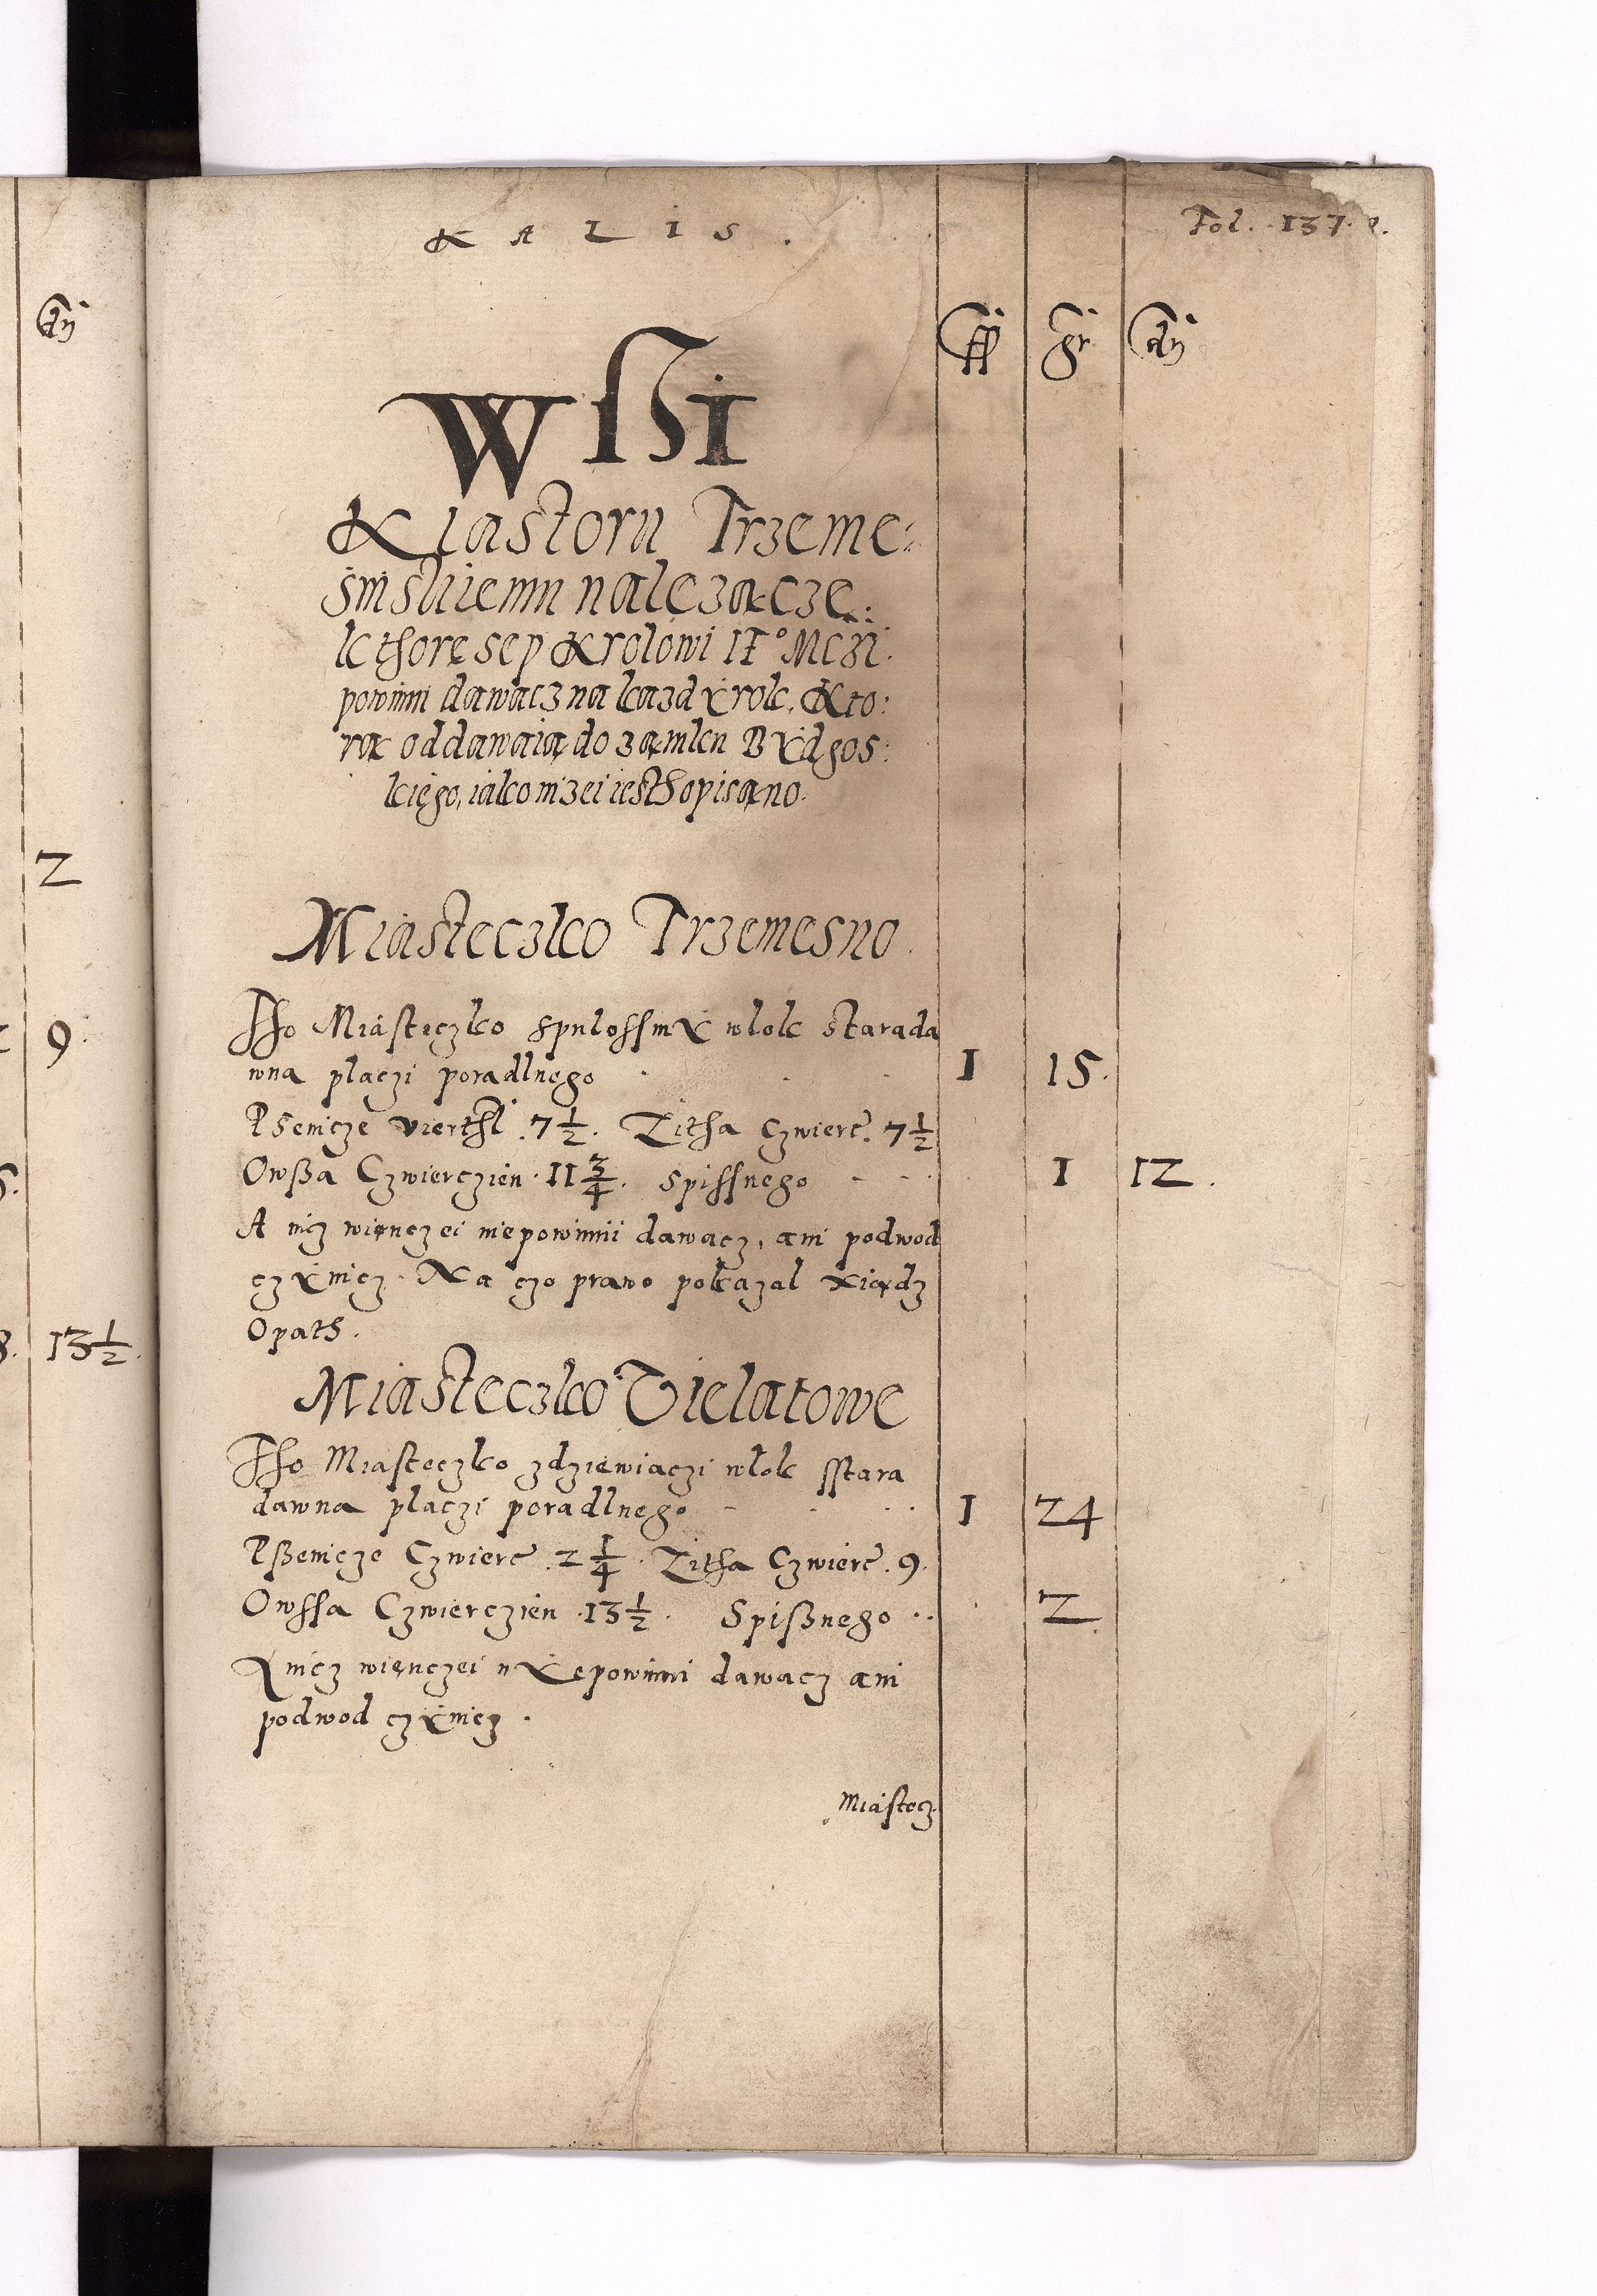 KALIS.
Fol. 137.
ff gr dn
Wßi
Klastoru Trzeme:
sinskiemu należącze:
kthore sep Krolowi IEº Mczi.
powinni dawacz na każdÿ rok. Kto:
rą oddawaią do zamku Bÿdgos:
kiego, iako niżei iesth opisano.
Miasteczko Trzemesno.
Tho Miasteczko spulossmÿ wlok starada
wna placzi poradlnego 1 15.
Psenicze viertħl. 7 1/2. Zitha Czwierc. 7 1/2
Owßa Czwierczien. 11 3/4. Spissnego 1 12.
A nicz więnczei niepowinnii dawacz, ani podwod
czÿnicz. Na czo prawo pokazal xiądz
Opath.
Miasteczko Vielatowe
Tho Miasteczko zdziewiaczi wlok sstara
dawna placzi poradlnego 1 24
Pßenicze Czwierc. 2 1/4. Zitha Czwierc. 9.
Owssa Czwierczien. 13 1/2. Spißnego 2
Ynicz więnczei nÿepowinni dawacz ani
podwod czÿnicz.
Miastecz
dn
2
9.
13 1/2.